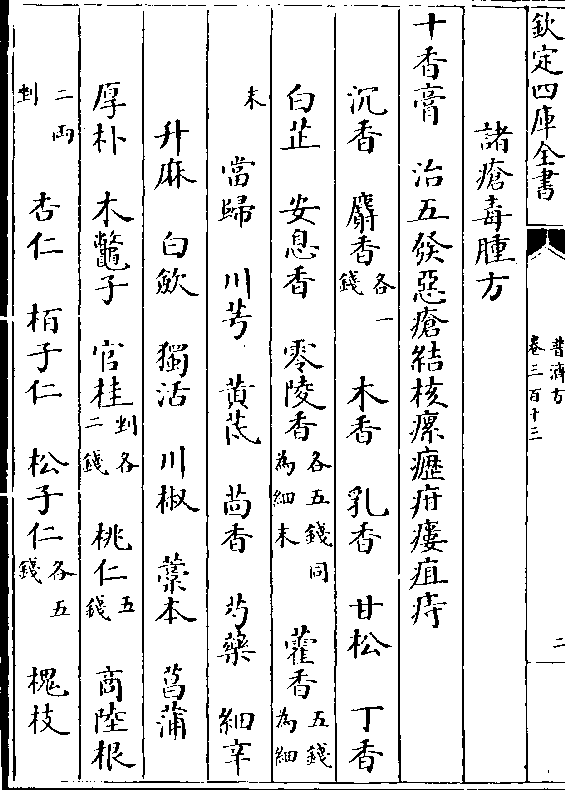 欽定四庫全書
普濟方
卷三百十三
二
諸瘡毒腫方
十香膏　治五發惡瘡結核瘰癧疳瘻疽痔
沉香　麝香各一錢　木香　乳香　甘松　丁香
白芷　安息香　零陵香各五錢同為細末　藿香五錢為細
末　當歸　川芎　黄芪　茴香　芍藥　細辛
升麻　白歛　獨活　川椒　藁本　菖蒲
厚朴　木鼈子　官桂剉各二錢　桃仁五錢　商陸根
二兩剉　杏仁　栢子仁　松子仁各五錢　槐枝